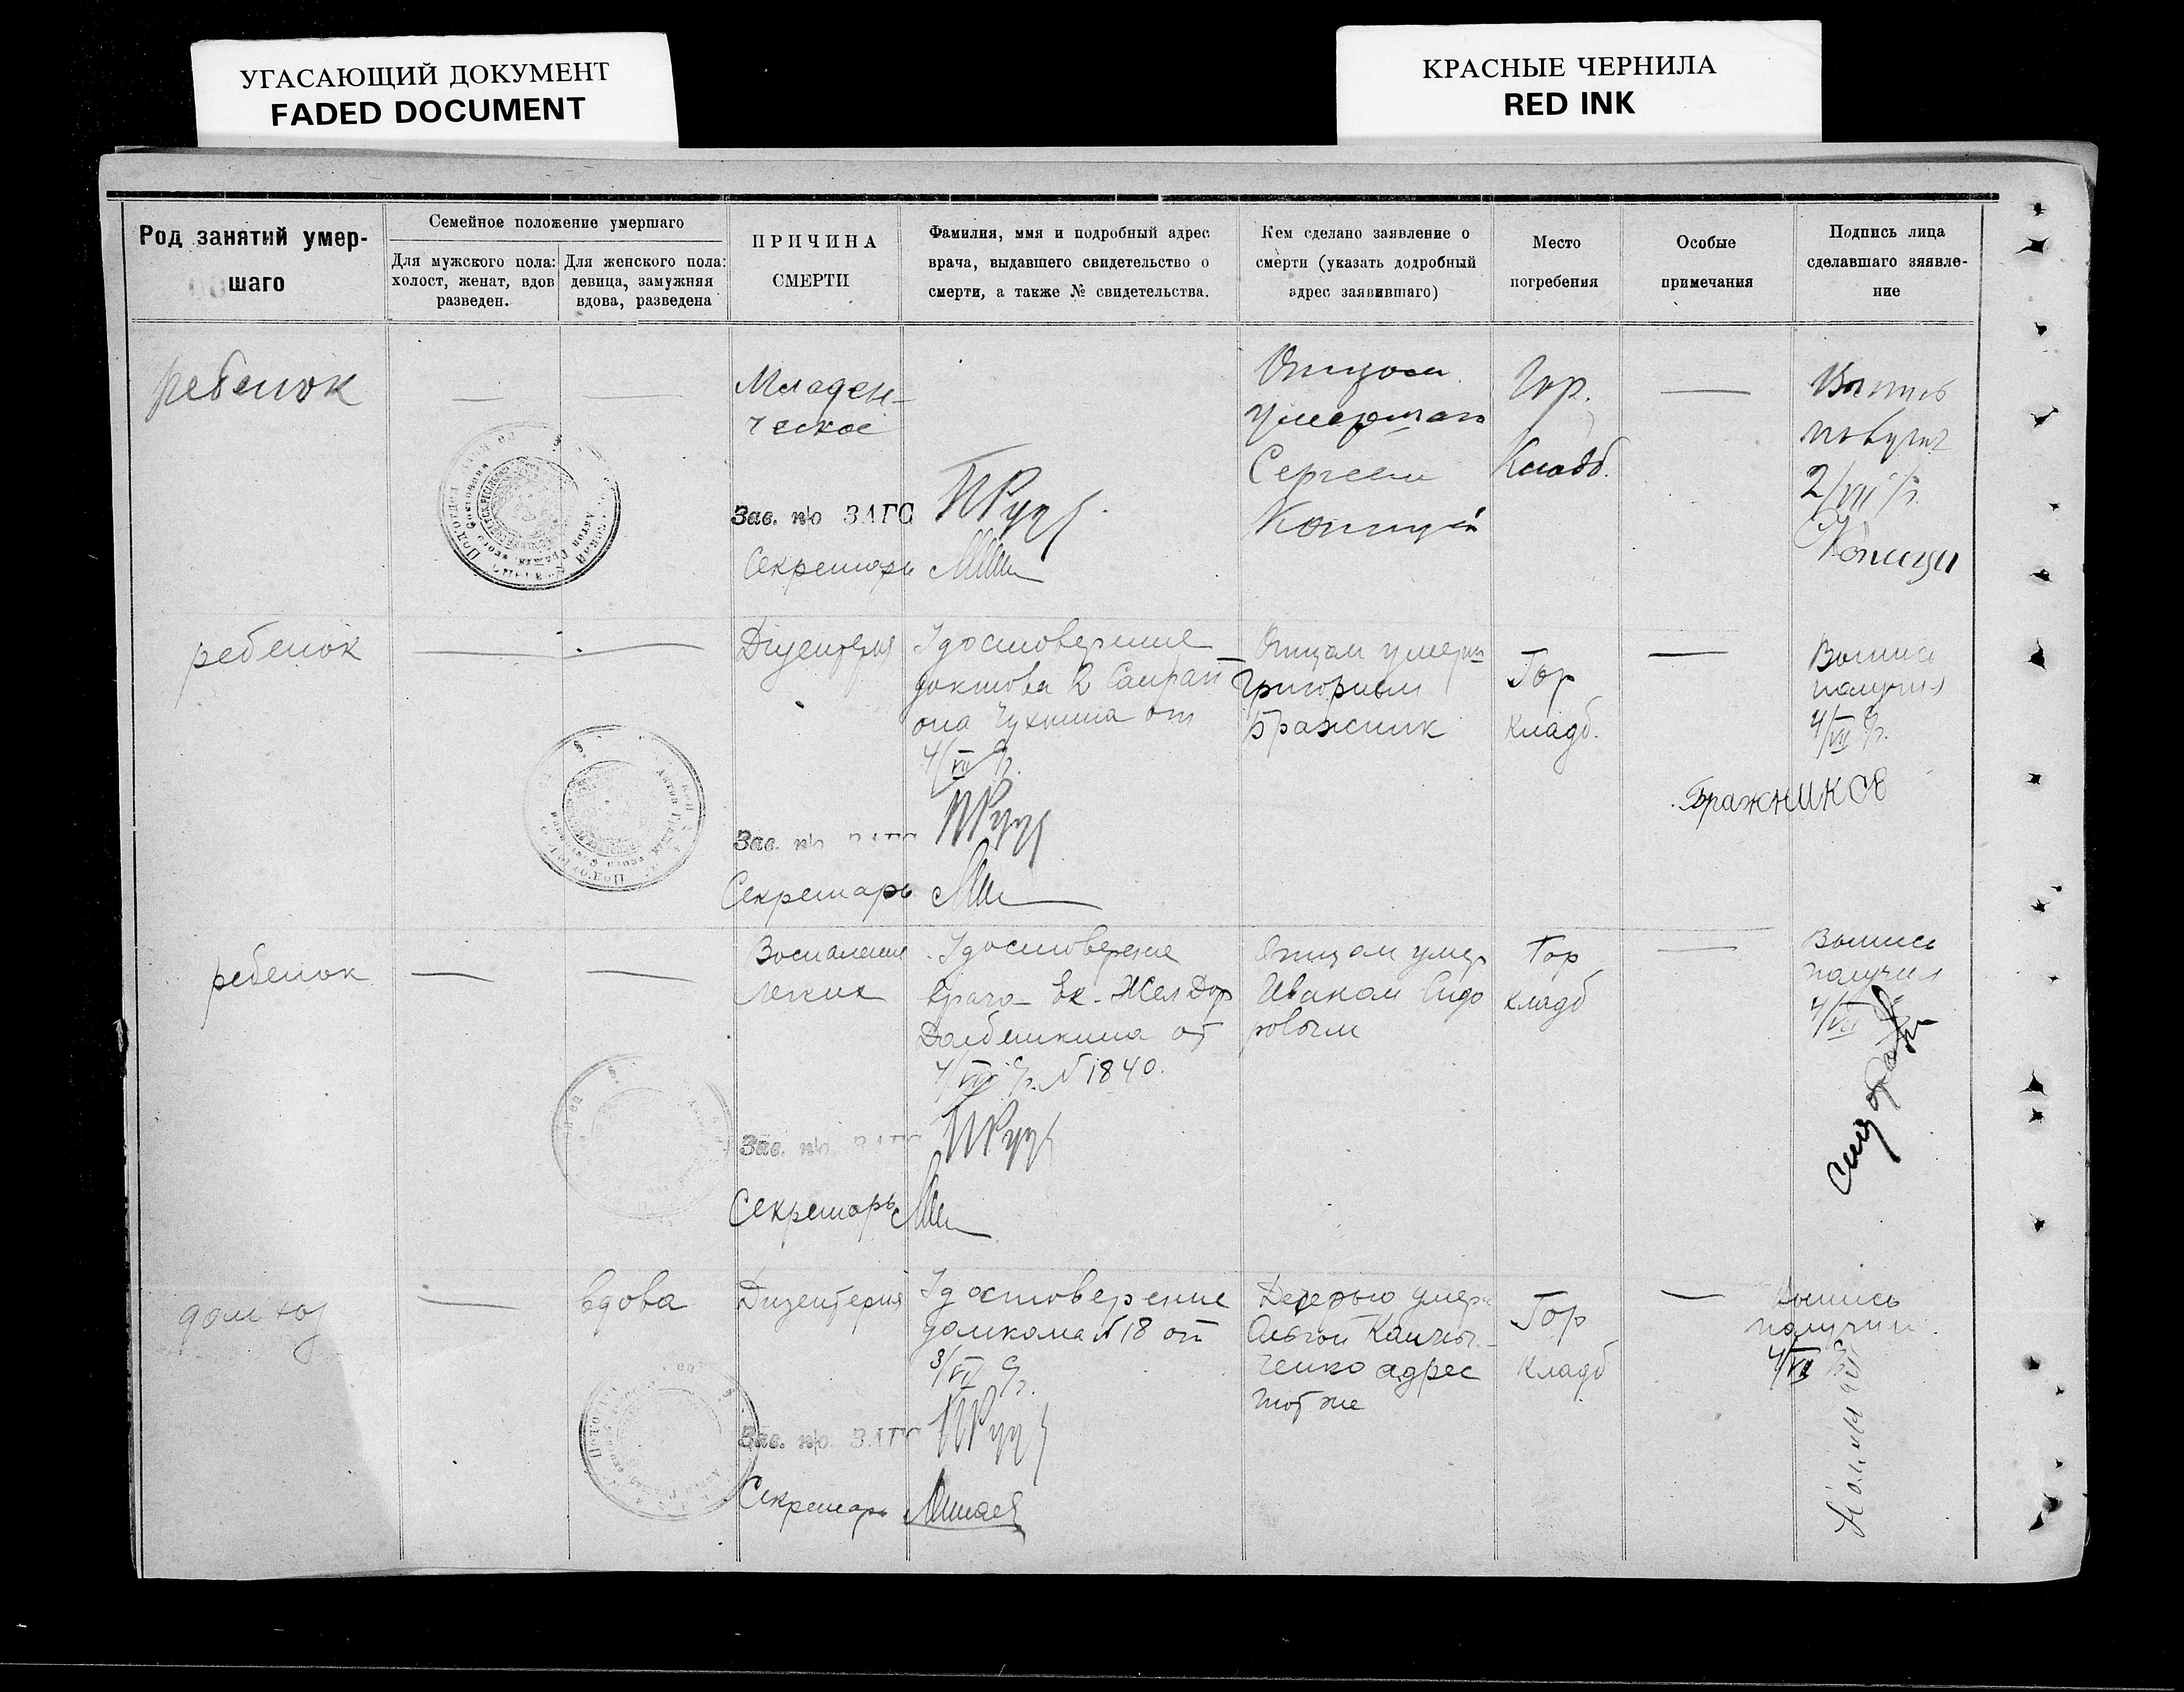 УГАСАЮЩИЙ ДОКУМЕНТ
FADED DOCUMENT
КРАСНЫЕ ЧЕРНИЛА
RED INK
Род занятий умер-
шаго
Семейное положение умершаго
Для мужского пола:
холост, женат, вдов
разведен.
Для женского пола:
девица, замужняя
вдова, разведена
ПРИЧИНА
СМЕРТИ
Фамилия, имя и подробный адрес
врача, выдавшего свидетельство о
смерти, а также № свидетельства.
Кем сделано заявление о
смерти (указать додробный
адрес заявившаго)
Место
погребения
Особые
примечания
Подпись лица
сделавшаго зяявле-
ние
ребенок
—
—
Младен-
ческое
Зав. п/о ЗАГС
Секретарь
Отцом
умершаго
Сергеем
Гор.
Кладб.
—
Выпись
получил
2/VII с/г.
ребенок
—
—
Дизентерия
Удостоверение
2
от
4/VII с/г.
Зав. п/о ЗАГС
Секретарь
Отцом умерш
Григорием
Бражник
Гор
кладб.
—
Выпись
получил
4/VII с/г.
Бражников
ребенок
—
—
Воспаление
легких
Удостоверение
врача Ек. Жел Дор
от
4/VII с/г. N 1840.
Зав. п/о ЗАГС
Секретарь
Отцом умер
Иваном Сидо
ровым
Гор
кладб
—
Выпись
получил
4/VII
Сидоров
дом хоз
—
вдова
Дизентерия
Удостоверение
домкома N 18 от
3/VII с/г.
Зав. п/о ЗАГС
Секретарь
Дочерью умерш
Ольгой
ченко адрес
тот же
Гор
кладб
—
Выпись
получил
4/VII с/г